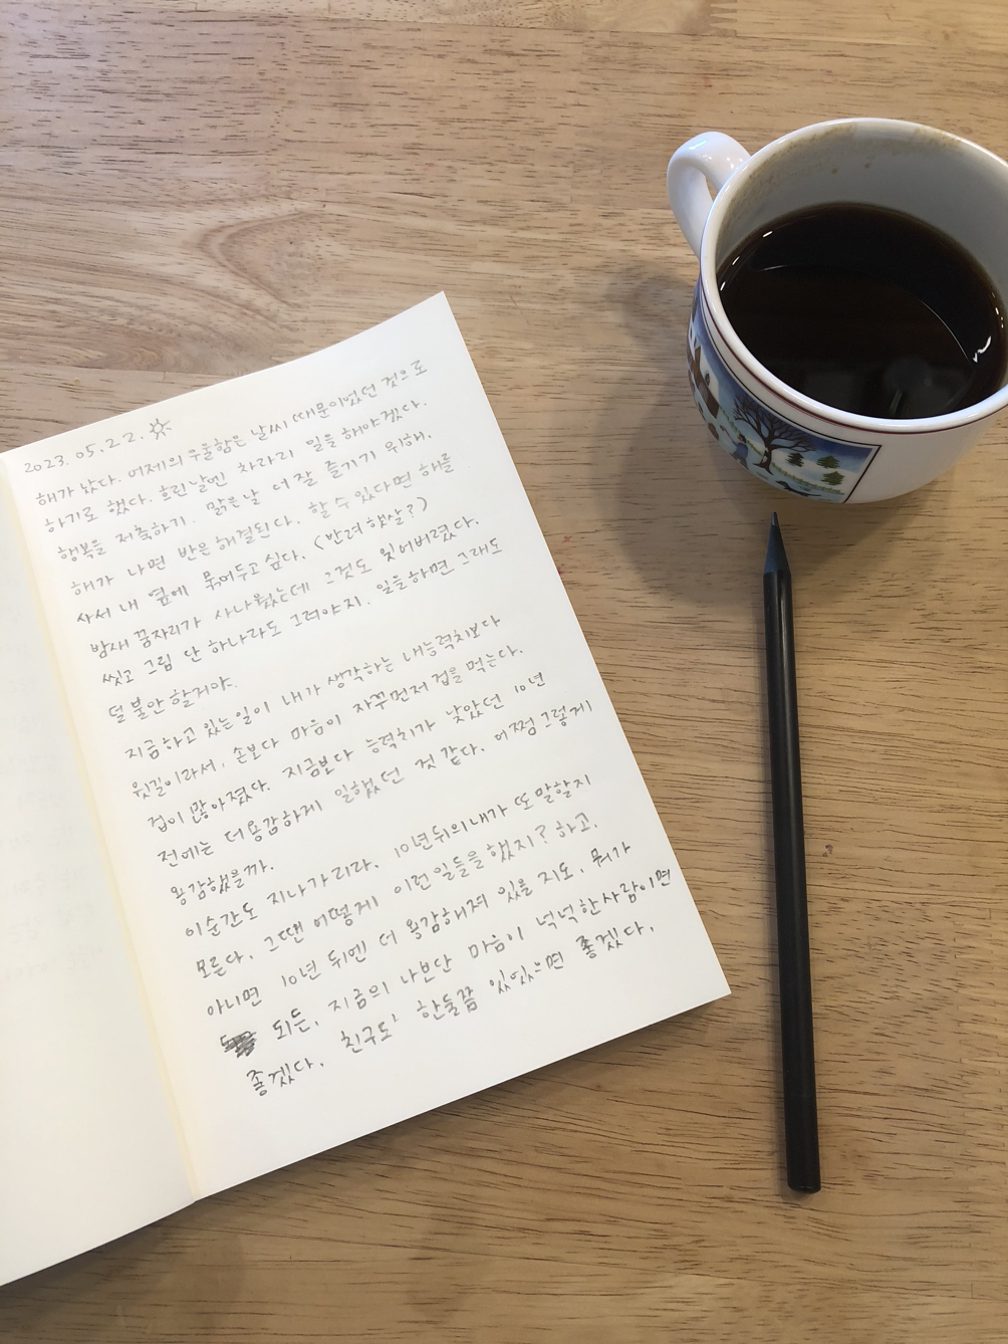 2023.05.22.
해가 났다. 어제의 우울함은 날씨 때문이었던 것으로
하기로 했다. 흐린날엔 차라리 일을 해야겠다.
행복을 저축하기. 맑은날 더 잘 즐기기 위해.
해가 나면 반은 해결된다. 할 수 있다면 해를
사서 내 옆에 묶어두고 싶다. (반려햇살?)
밤새 꿈자리가 사나웠는데 그것도 잊어버렸다.
씻고 그림 단 하나라도 그려야지. 일을하면 그래도
덜 불안할거야.
지금하고 있는일이 내가 생각하는 내능력치보다
윗길이라서, 손보다 마음이 자꾸먼저 겁을 먹는다.
겁이 많아졌다. 지금보다 능력치가 낮았던 10년
전에는 더용감하게 일했던 것 같다. 어쩜 그렇게
용감했을까.
이순간도 지나가리라. 10년뒤의내가 또 말할지
모른다. 그땐 어떻게 이런일들을했지? 하고.
아니면 10년 뒤엔 더 용감해져 있을 지도. 뭐가
되든, 지금의 나보단 마음이 넉넉한사람이면
좋겠다. 친구도 한둘쯤 있었으면 좋겠다.